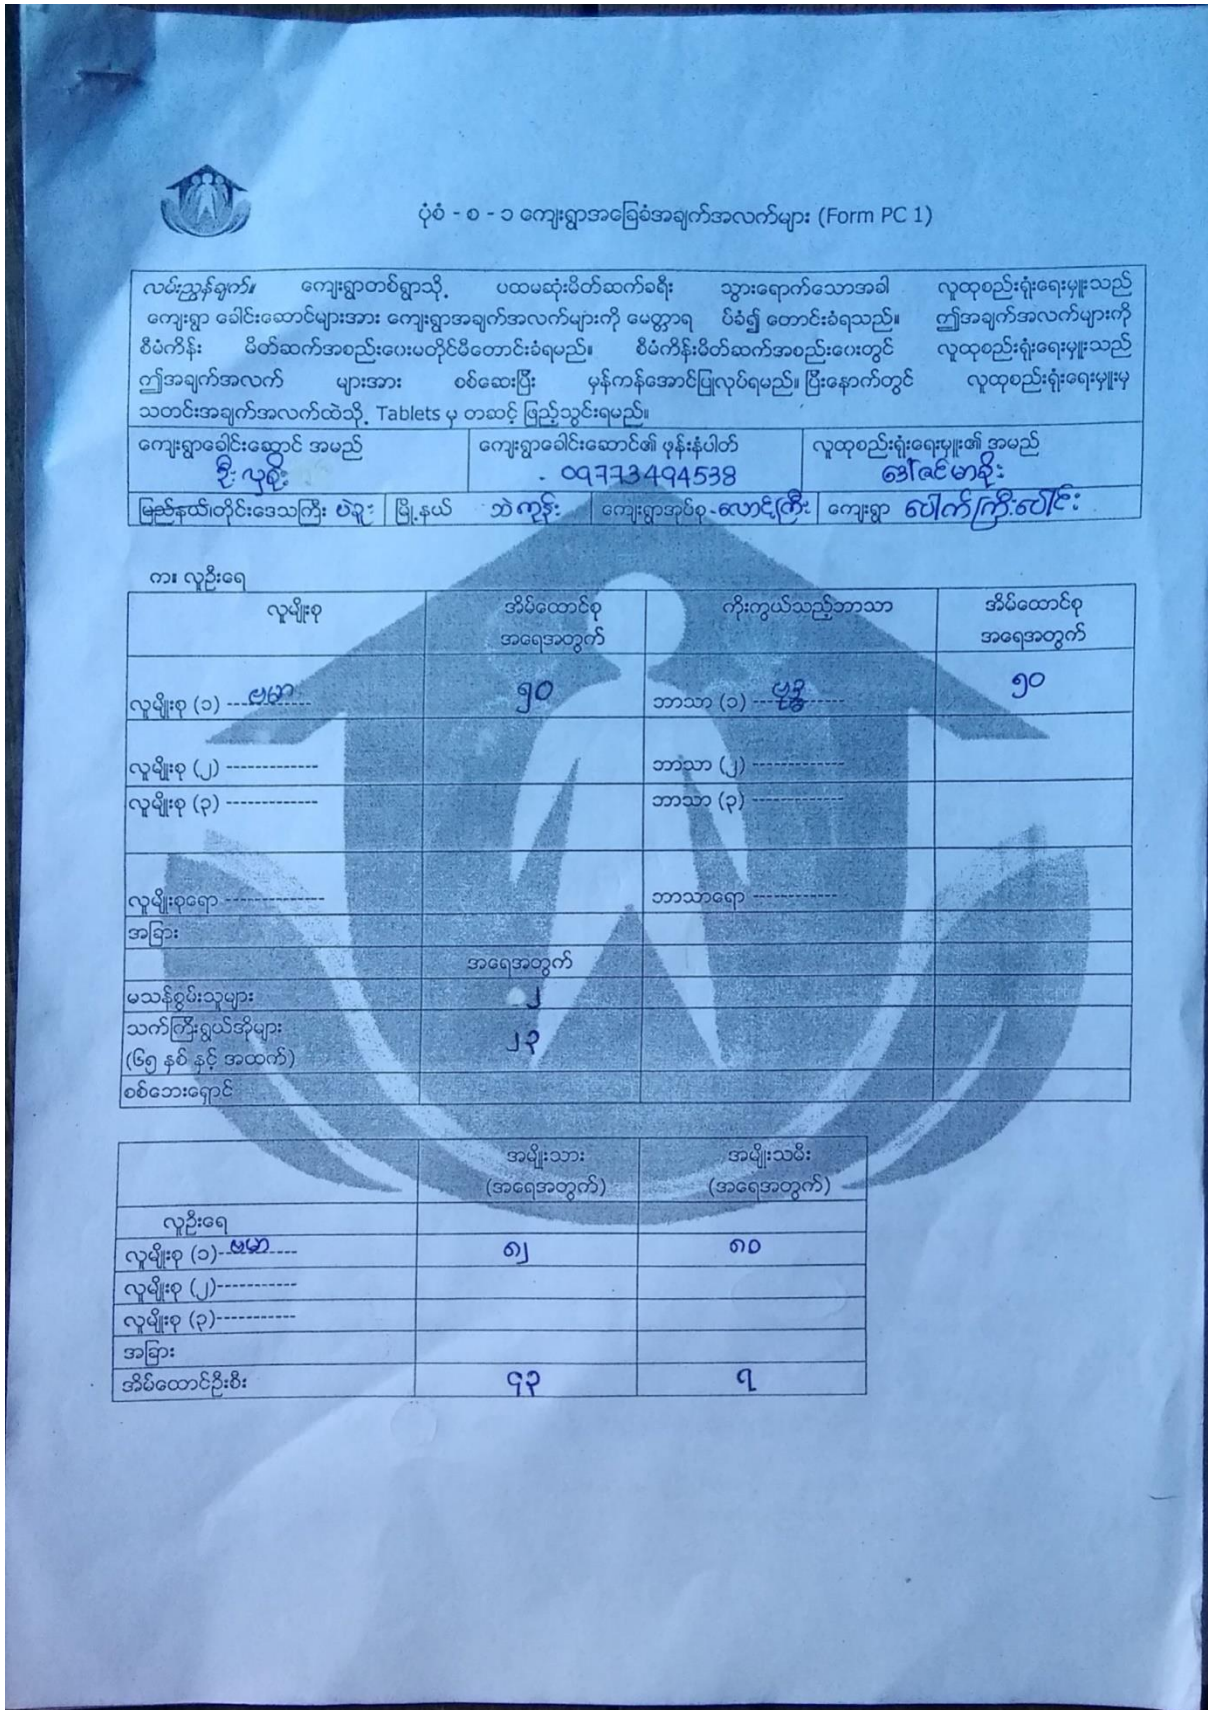 ပုံစံ - စ - ၁ ကျေးရွာအခြေခံအချက်အလက်များ (Form PC 1)
လမ်းညွှန်ချက်။ ကျေးရွာတစ်ရွာသို့ ပထမဆုံးမိတ်ဆက်ခရီး သွားရောက်သောအခါ လူထုစည်းရုံးရေးမှူးသည်
ကျေးရွာ ခေါင်းဆောင်များအား ကျေးရွာအချက်အလက်များကို မေတ္တာရ ပ်ခံ၍ တောင်းခံရသည်။ ဤအချက်အလက်များကို
စီမံကိန်း မိတ်ဆက်အစည်းဝေးမတိုင်မီတောင်းခံရမည်။ စီမံကိန်းမိတ်ဆက်အစည်းဝေးတွင် လူထုစည်းရုံးရေးမှူးသည်
ဤအချက်အလက် များအား စစ်ဆေးပြီး မှန်ကန်အောင်ပြုလုပ်ရမည်။ ပြီးနောက်တွင် လူထုစည်းရုံးရေးမှူးမှ
သတင်းအချက်အလက်ထဲသို့ Tablets မှ တဆင့် ဖြည့်သွင်းရမည်။
ကျေးရွာခေါင်းဆောင် အမည် ကျေးရွာခေါင်းဆောင်၏ ဖုန်းနံပါတ် လူထုစည်းရုံးရေးမှူး၏ အမည်
ဦးလှစိုး 09773494538 ဒေါ်ဇင်မာစိုး
ပြည်နယ်/တိုင်းဒေသကြီး ပဲခူး မြို့နယ် ကျေးရွာအုပ်စု ကျေးရွာ
က။ လူဦးရေ
လူမျိုးစု အိမ်ထောင်စု အရေအတွက် ကိုးကွယ်သည့်ဘာသာ အိမ်ထောင်စု အရေအတွက်
လူမျိုးစု (၁) ---ဗမာ--- ၅၀ ဘာသာ (၁) ---ဗုဒ္ဓ--- ၅၀
လူမျိုးစု (၂) ------------- ဘာသာ (၂) -------------
လူမျိုးစု (၃) ------------- ဘာသာ (၃) -------------
လူမျိုးစုရော -------------- ဘာသာရော ------------
အခြား
အရေအတွက်
မသန်စွမ်းသူများ ၂
သက်ကြီးရွယ်အိုများ
(၆၅ နှစ် နှင့် အထက်) ၂၃
စစ်ဘေးရှောင်
အမျိုးသား (အရေအတွက်) အမျိုးသမီး (အရေအတွက်)
လူဦးရေ
လူမျိုးစု (၁)--ဗမာ---- ၈၂ ၈၀
လူမျိုးစု (၂)-----------
လူမျိုးစု (၃)-----------
အခြား
အိမ်ထောင်ဦးစီး ၄၃ ၇